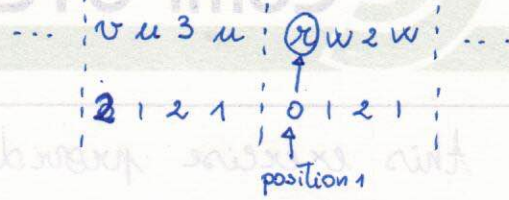 ... v u 3 u r w 2 w ...
2 1 2 1 0 1 2 1
position 1